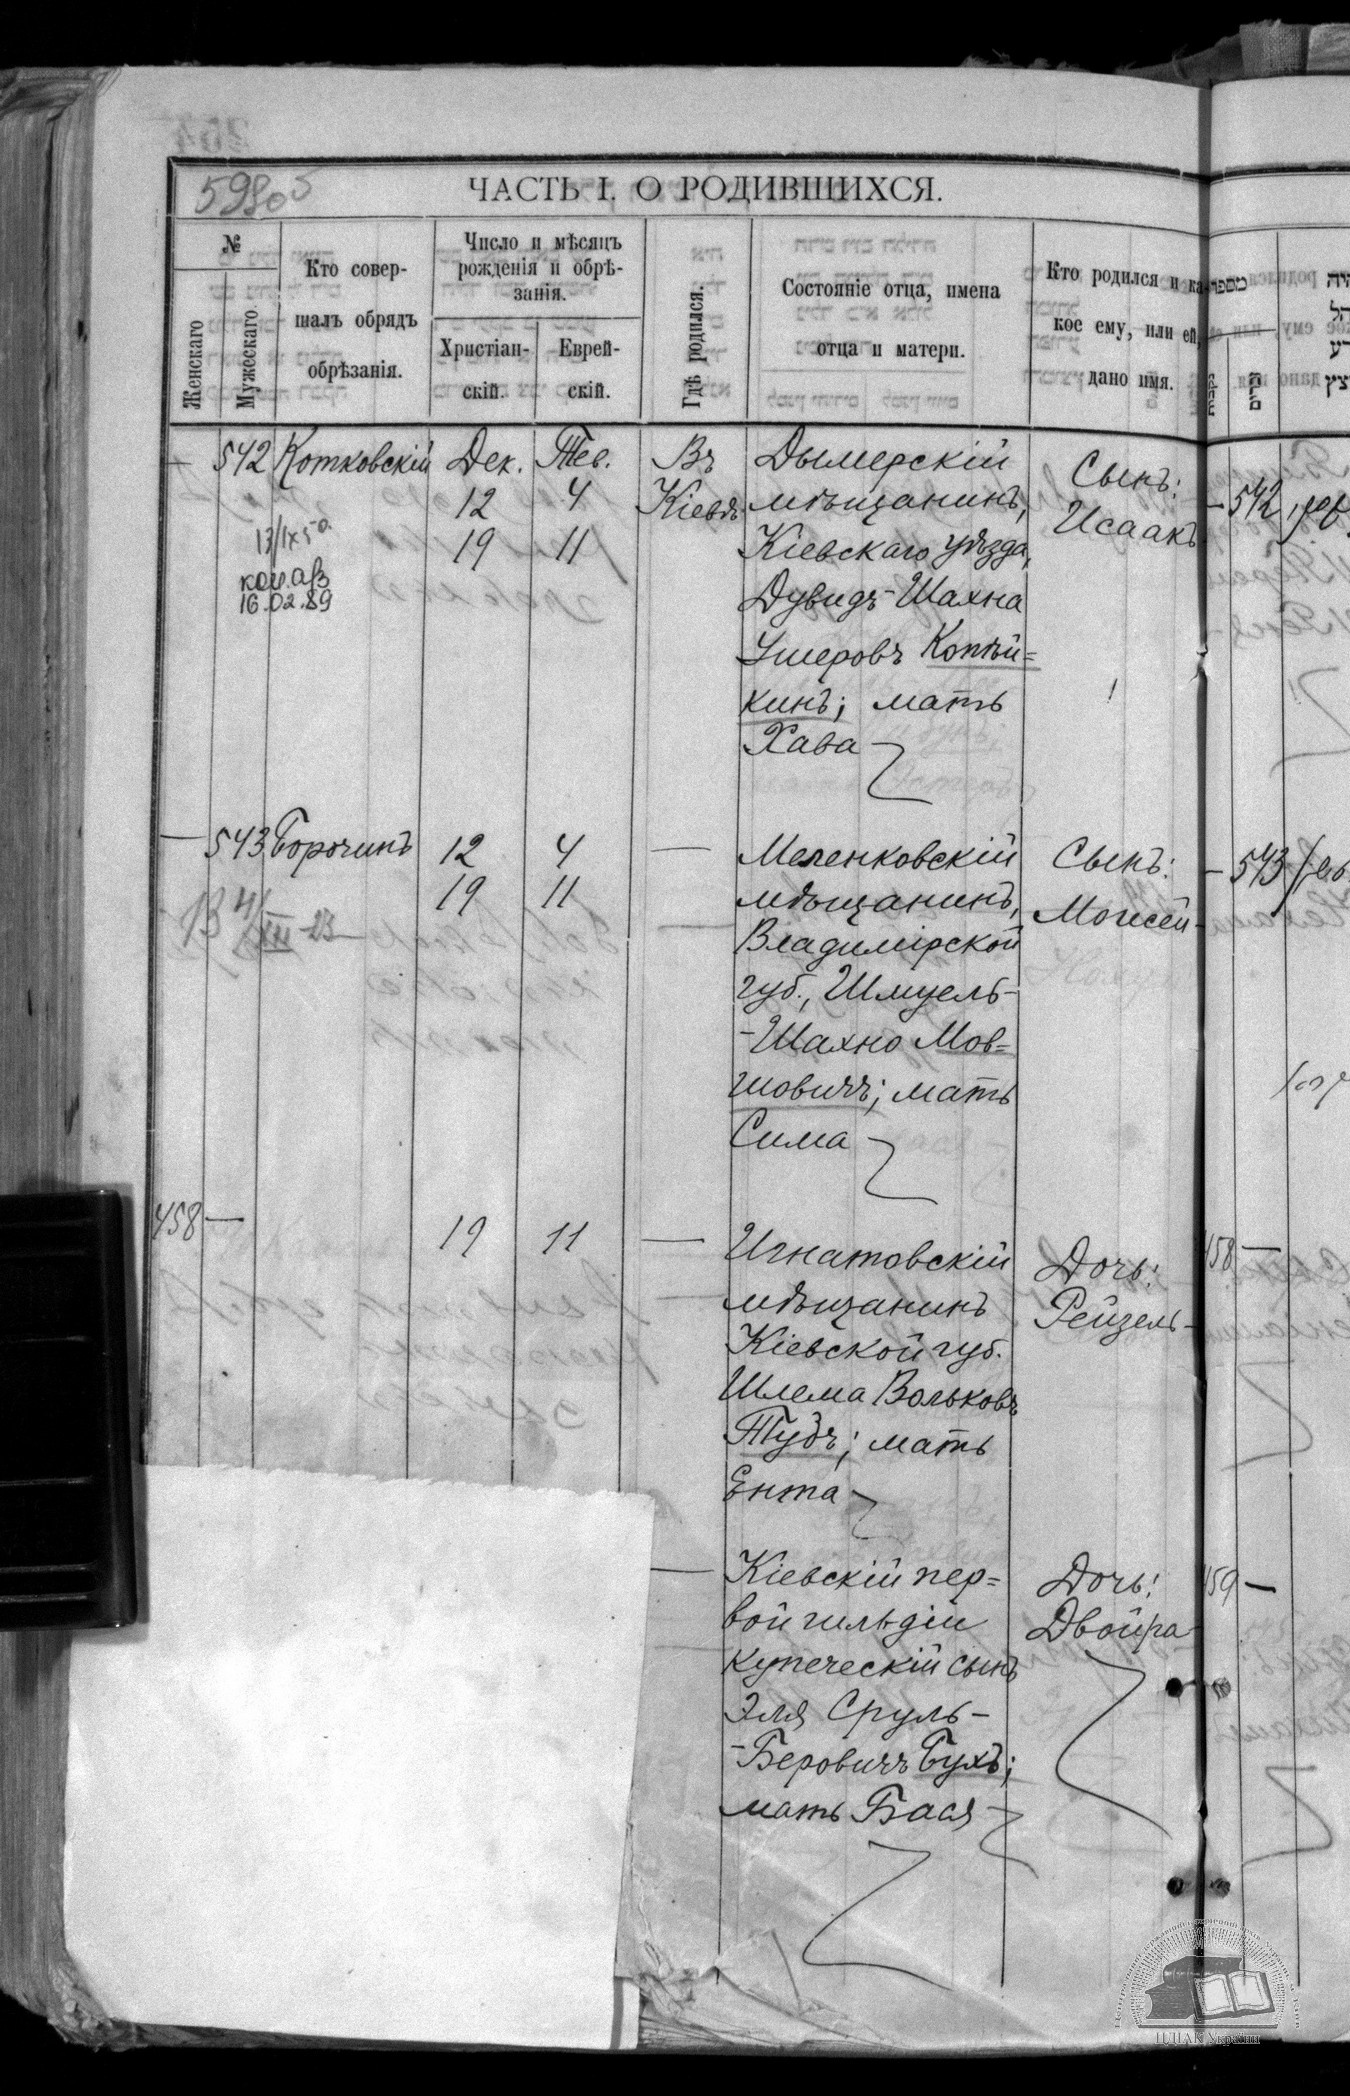 59805
ЧАСТЬ I. О РОДИВШИХСЯ.
№
Женскаго
Мужескаго
Кто совер-
шалъ обрядъ
обрѣзанія.
Число и мѣсяцъ
рожденія и обрѣ-
занія.
Христіан-
скій.
Еврей-
скій.
Гдѣ родился.
Состояніе отца, имена
отца и матери.
Кто родился и ка-
кое ему, или ей,
дано имя.
— 542 Котковскій Дек. Тев. Въ Дымерскій Сынъ: — 542
12 4 Кіевѣ мѣщанинъ, Исаакъ
19 11 Кіевскаго уѣзда,
коп. арз
16.02.89
Дувидъ-Шахна
Ушеровъ Копѣй=
кинъ; мать
Хава
— 543 Борочинъ 12 4 — Меленковскій Сынъ: — 543
19 11 мѣщанинъ, Моисей
Владимірской
губ., Шмуель-
-Шахно Мов=
шовичъ; мать
Сима
458 — 19 11 — Игнатовскій Дочь: 458 —
мѣщанинъ Рейзель
Кіевской губ.
Шлема Вольковъ
Тубъ; мать
Ента
— Кіевскій пер= Дочь: 459 —
вой гильдіи Двойра
купеческій сынъ
Эля Сруль-
-Беровичъ Бухъ;
мать Бася
ЦДІАК України